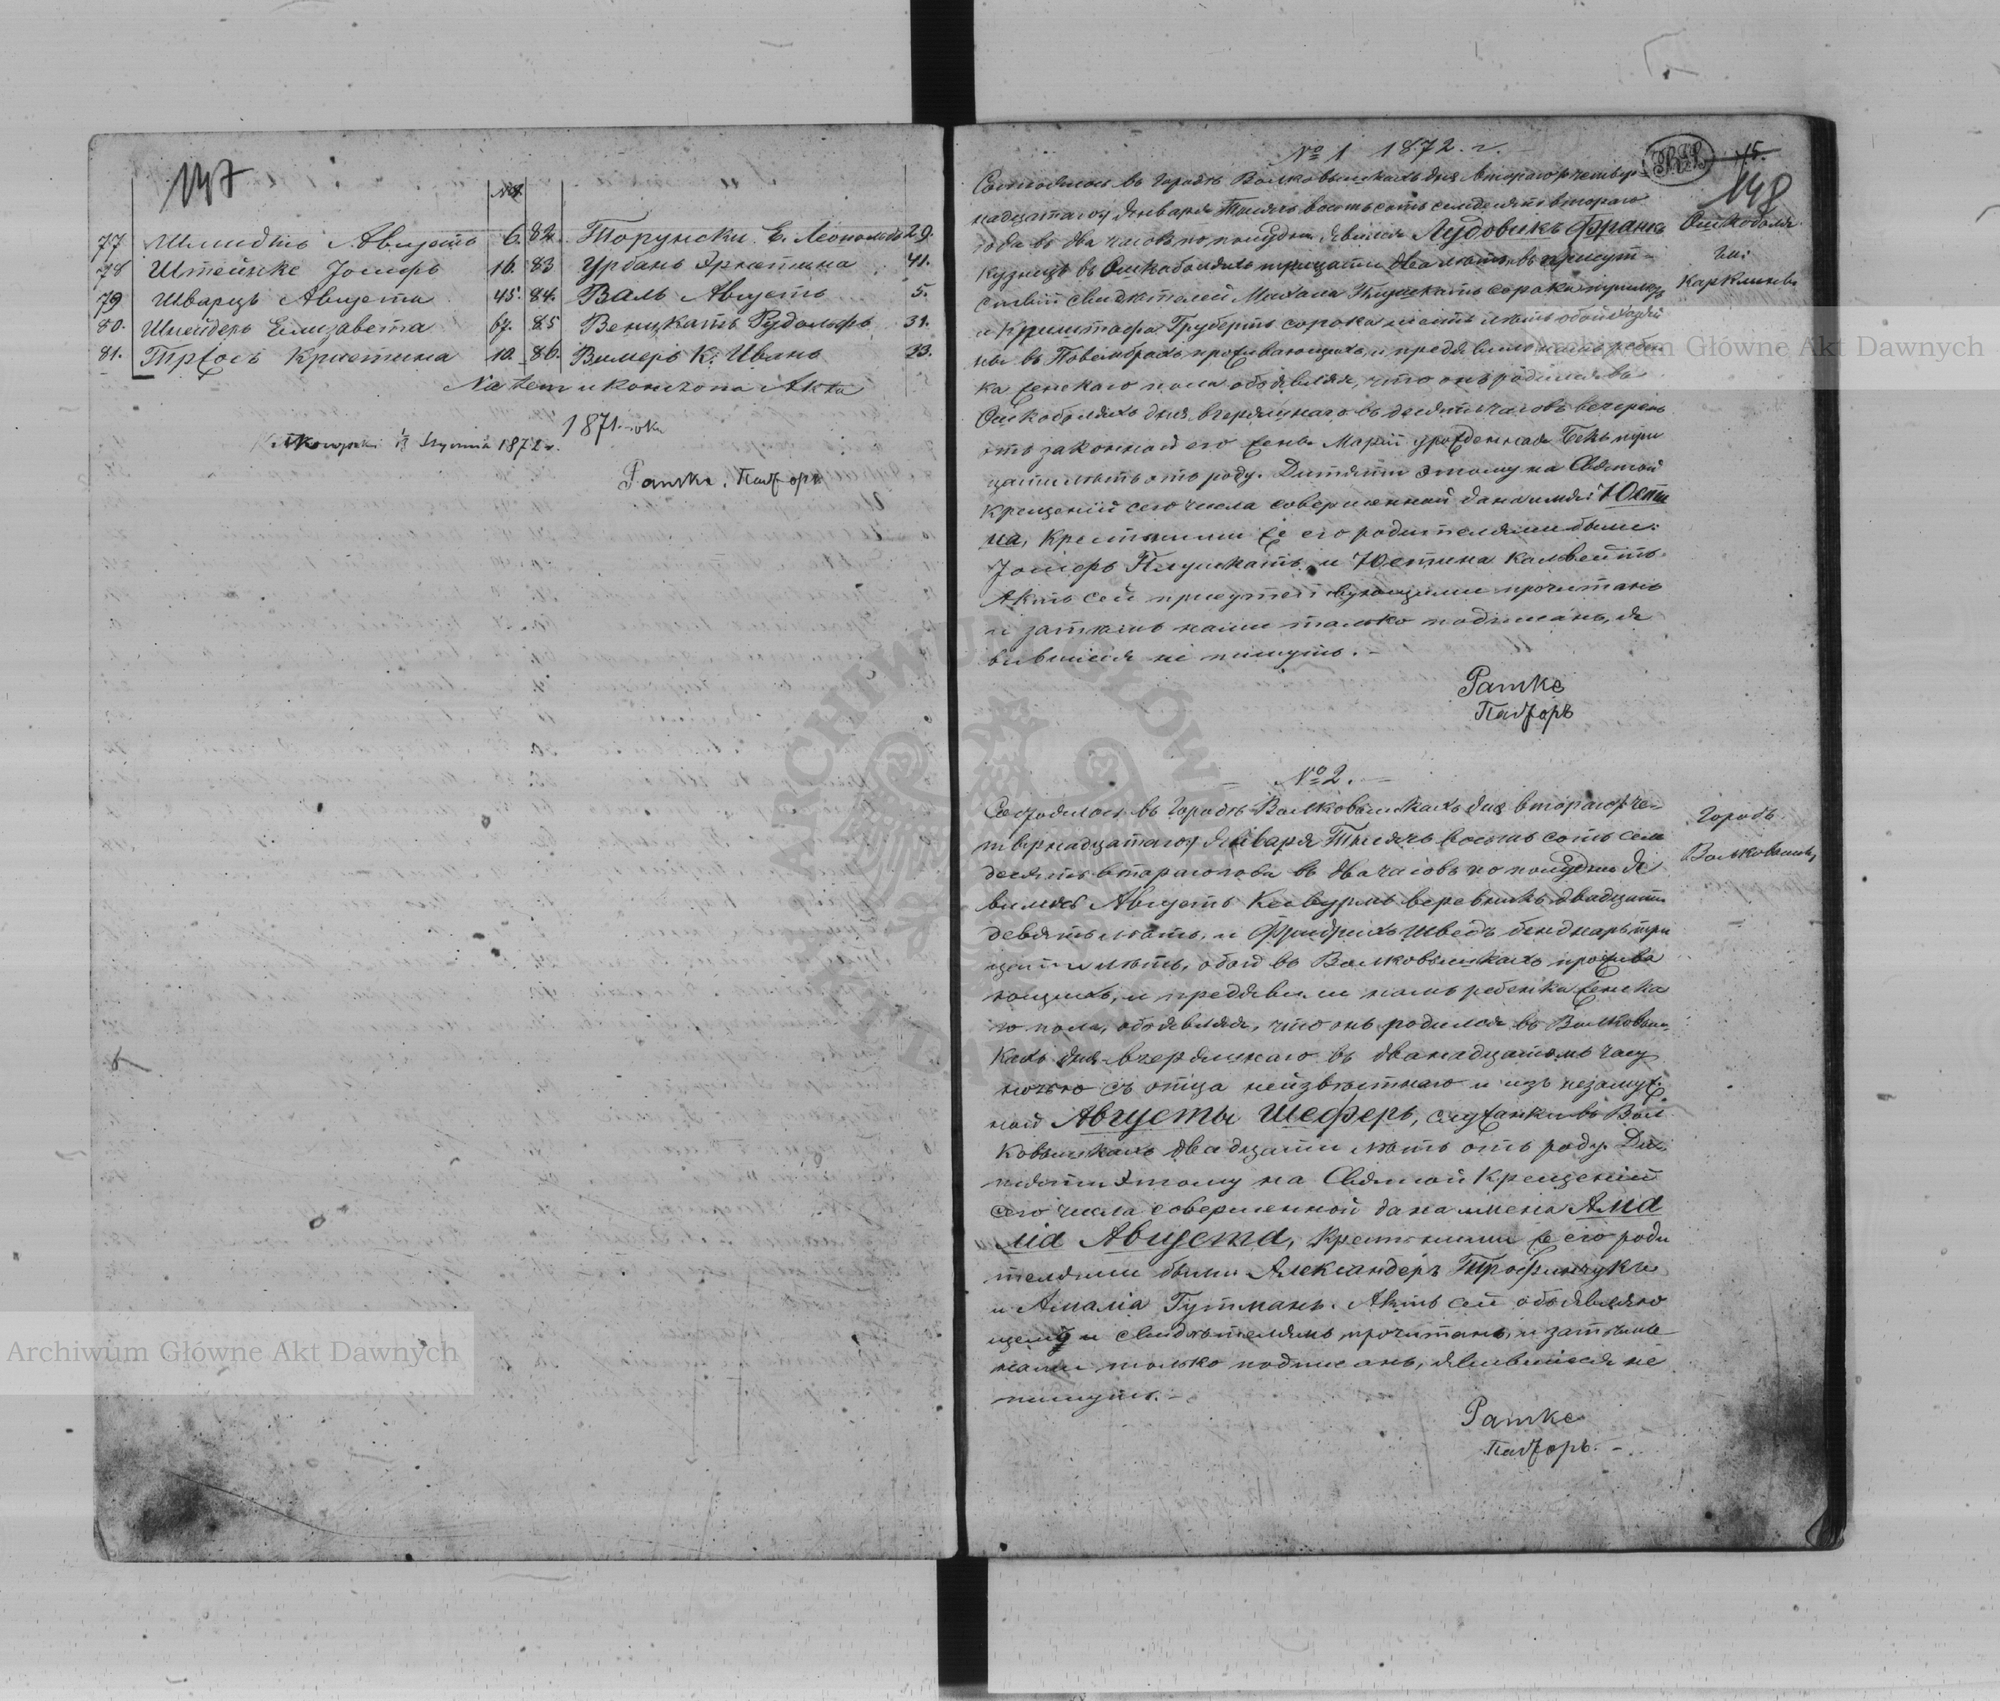 147
№
77 Шмидтъ Августъ 6. 82. Торунски Е. Леопольдъ 29.
78 Штейнке Іосифъ 16. 83 Урбанъ Эрнстина 41.
79 Шварцъ Августа 45. 84. Валь Августъ 5.
80. Шнейдеръ Елизавета 67. 85 Венцкатъ Рудольфъ 31.
81. Кристина 10. 86. Вимеръ К. Иванъ 23.
Na tem ukończona Akta
1871 roku
1872 г.
Ратке, Пасторъ
№ 1 1872. г.
15.
148
Состоялось въ городѣ Волковышкахъ дня втораго/четыр-
надцатаго/ Января Тысяча восемьсотъ семдесятъ втораго
года въ два часа по полудни. Явился Лудовикъ Франкъ
кузнецъ въ Ошкобаляхъ тридцати два лѣтъ, въ присут-
ствіи свидѣтелей Михала сорока
и Криштофа Грубертъ сорока шесть лѣтъ
въ проживающихъ, и предъявилъ намъ ребен-
ка женскаго пола объявляя, что онъ родился въ
Ошкобаляхъ дня вчерашнаго въ десять часовъ вечеромъ
отъ законной его жены Маріи урожденная Бекъ трид
цати лѣтъ отъ роду. Дитяти этому на Святой
Крещеніи сего числа совершенной дано имя: Юсти
на, крестными же его родителями были:
Іосифъ и Юстина Калвейтъ.
Актъ сей присутствующими прочитанъ
и затѣмъ нами только подписанъ, я
вившіеся не пишутъ. -
Ратке
Пасторъ
Ошкобаля
Гм:
Карклины
№ 2.
Состоялось въ городѣ Волковышкахъ дня втораго/че-
твернадцатаго/ Января Тысяча восемьсотъ сем
десятъ втораго года въ два часовъ по полудни Я
вились Августъ двадцати
девять лѣтъ, и Фридрихъ Шведъ бенднаръ три
цати лѣтъ, обои въ Волковышкахъ прожива
ющихъ, и предъявили намъ ребенка женска
го пола, объявляя, что онъ родился въ Волковыш-
кахъ дня вчерашнаго въ дванадцатомъ часу
ночью съ отца неизвѣстнаго и изъ незамуж
ной Августы Шеферъ, служанки въ Вол
ковышкахъ двадцати лѣтъ отъ роду. Ди-
тяти этому на Святой Крещеніи
сего числа совершенной дано имена Ама
ліа Августа, крестными же его роди
телями были Александеръ Трофимчукъ
и Амаліа Гутманъ. Актъ сей объявляю
щему и свидѣтелямъ прочитанъ, и затѣмъ
нами только подписанъ, явившіеся не
пишутъ. -
Ратке
Пасторъ. -
Городъ
Волковышки
Archiwum Główne Akt Dawnych
Archiwum Główne Akt Dawnych
ARCHIWUM GŁÓWNE AKT DAWNYCH